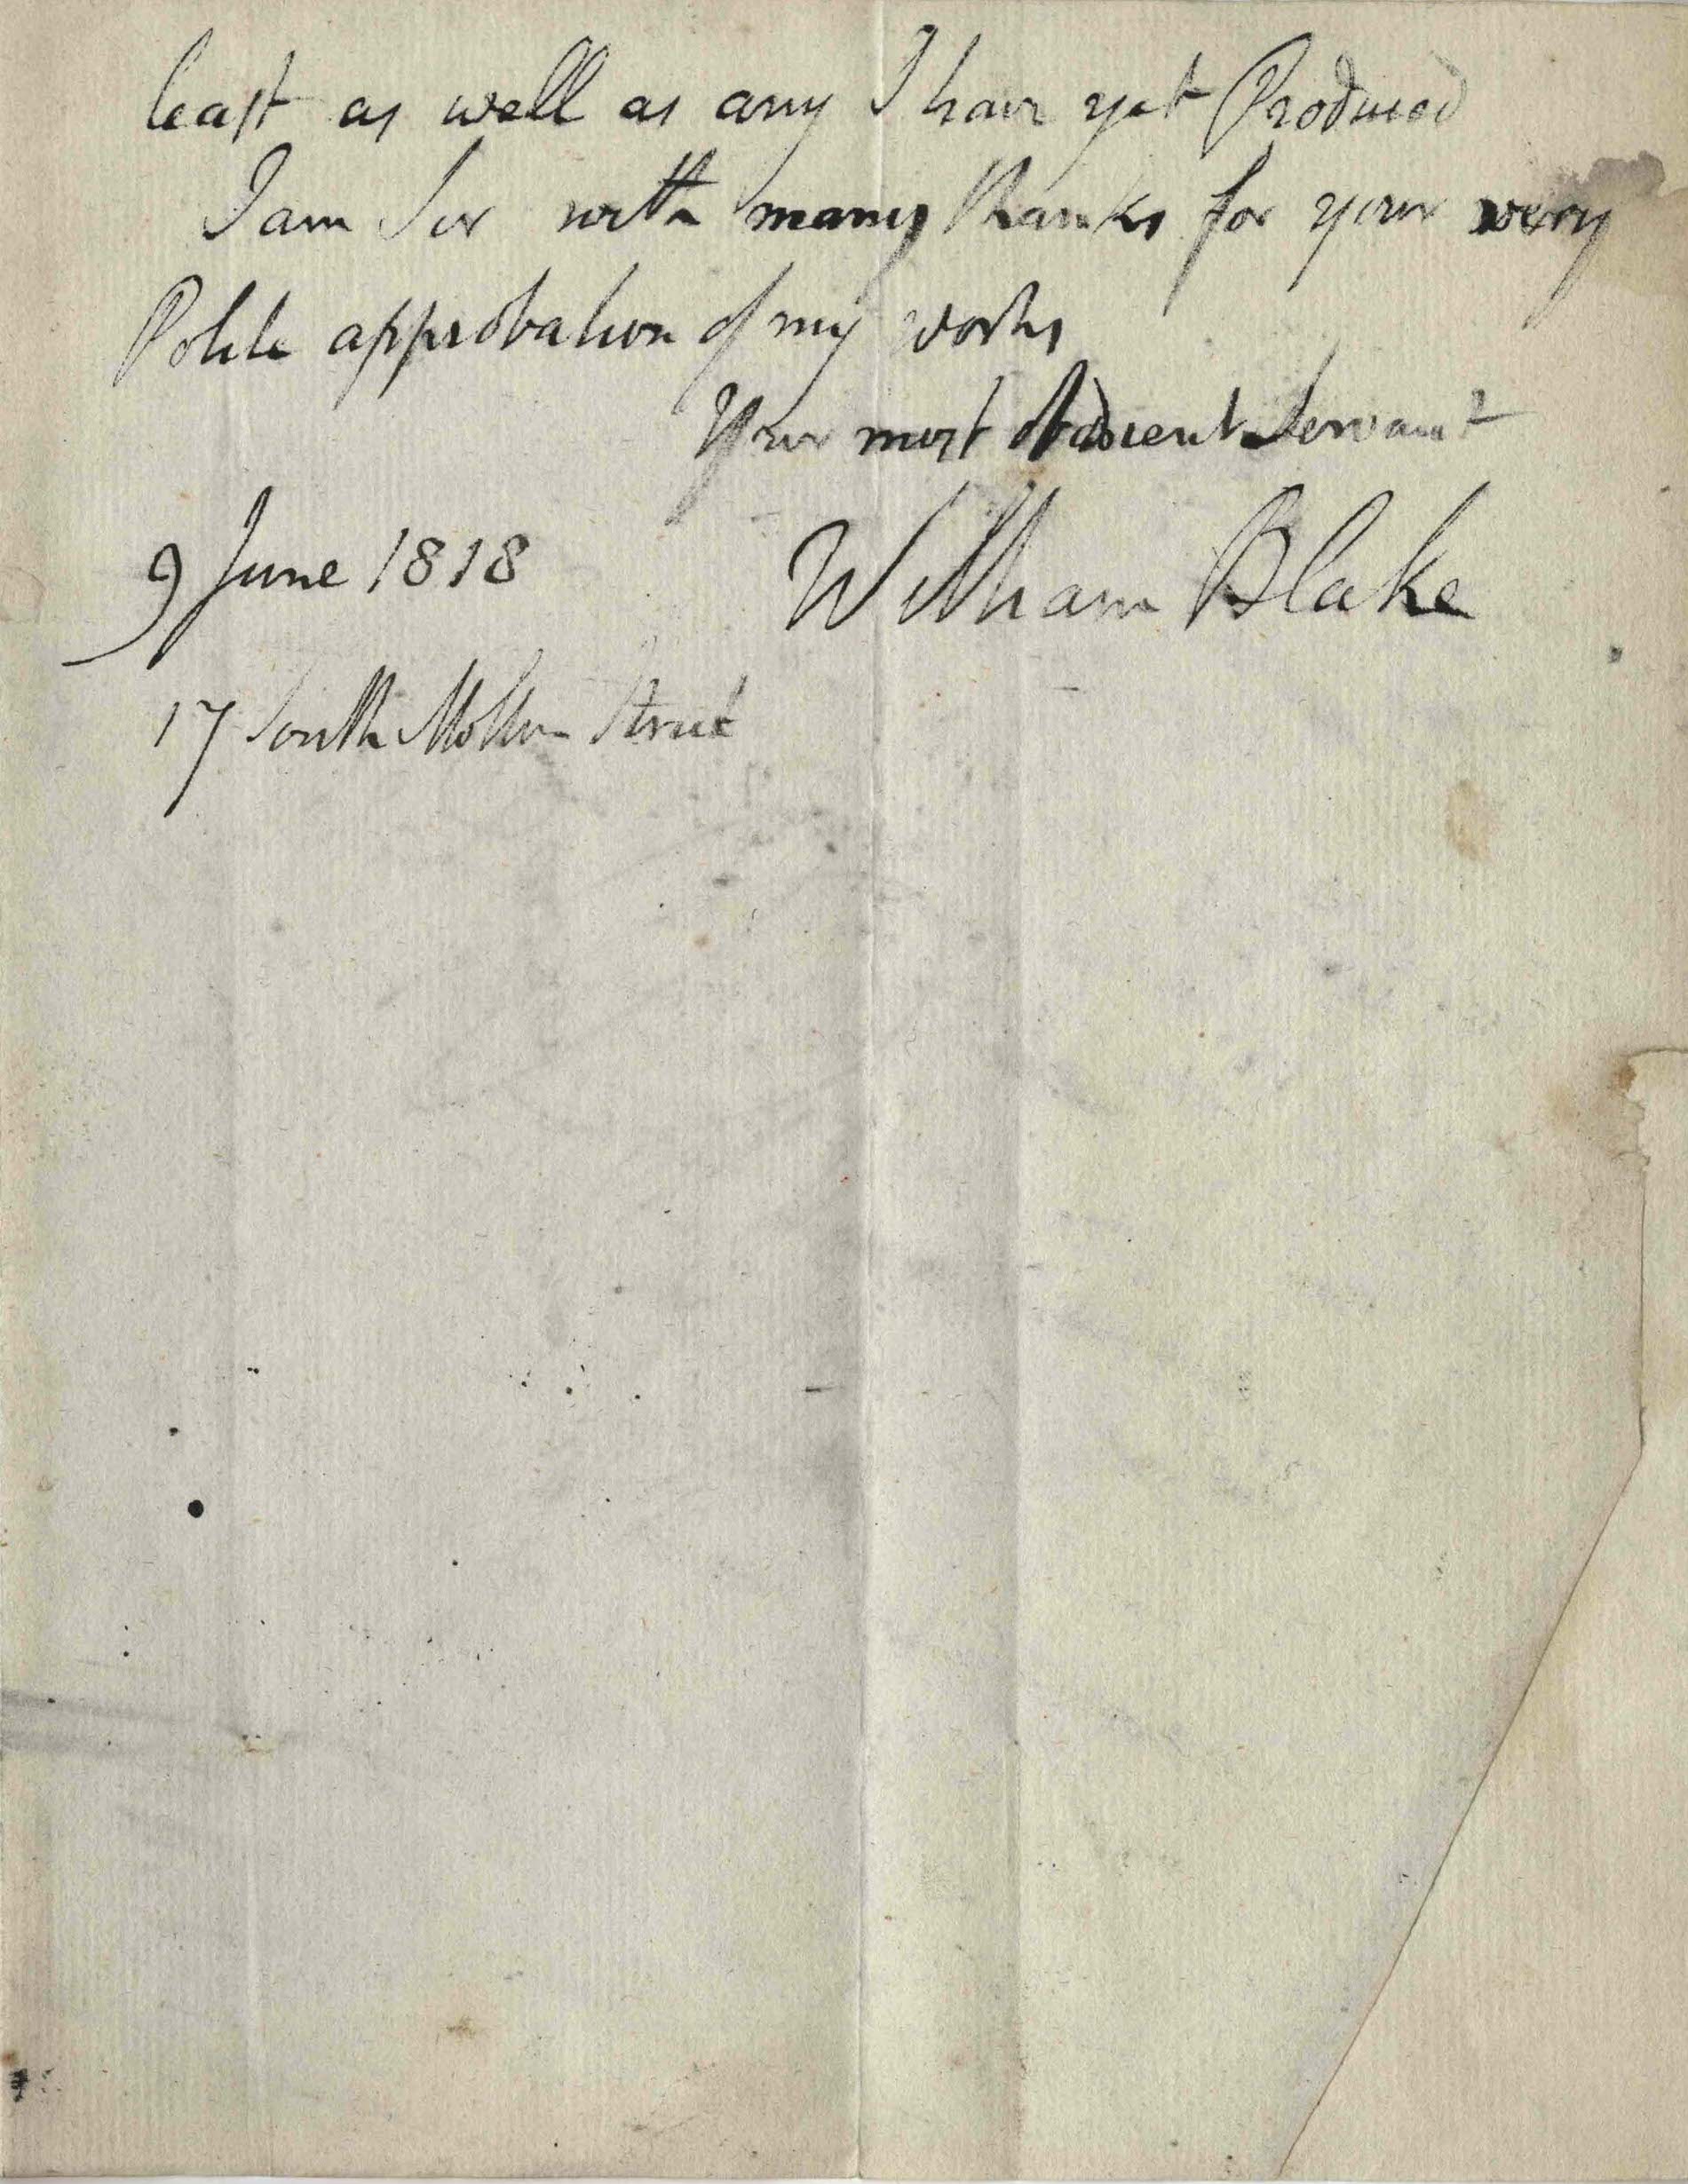 least as well as any I have yet Produced
I am Sir with many thanks for your very
Polite approbation of my works
Your most obedient Servant
9 June 1818
William Blake
17 South Molton Street